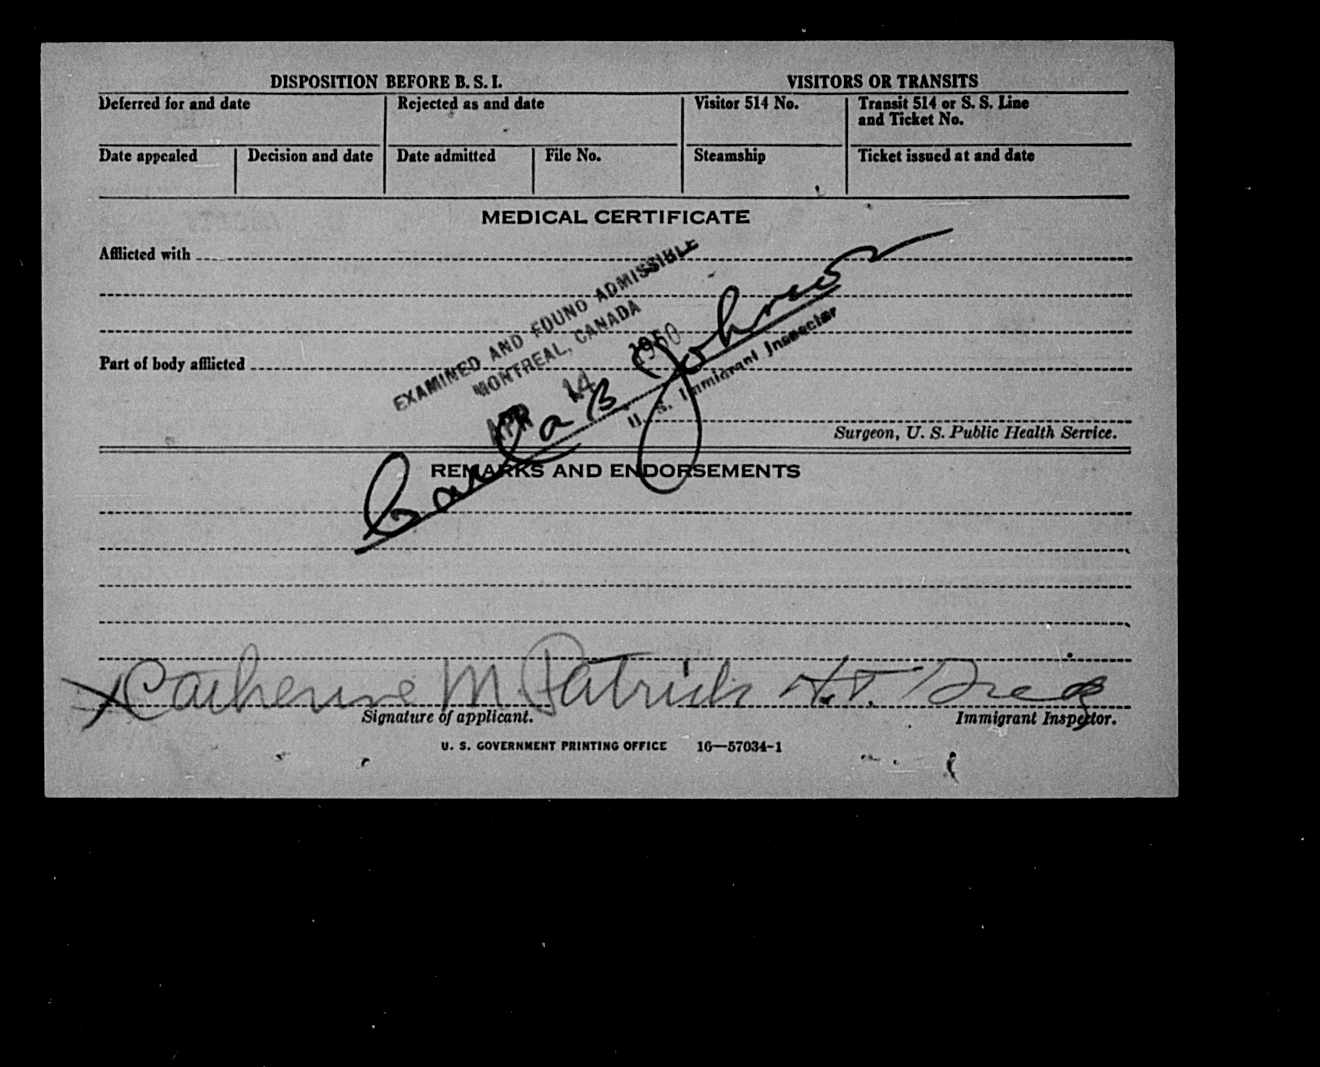 DISPOSITION BEFORE B. S. I.
VISITORS OR TRANSITS
Deferred for and date
Rejected as and date
Visitor 514 No.
Transit 514 or S. S. Line
and Ticket No.
Date appealed
Decision and date
Date admitted
File No.
Steamship
Ticket issued at and date
MEDICAL CERTIFICATE
Afflicted with
EXAMINED AND FOUND ADMISSIBLE
MONTREAL, CANADA
APR 14 1950
Part of body afflicted
U. S. Immigrant Inspector
Surgeon, U. S. Public Health Service.
REMARKS AND ENDORSEMENTS
X Catherine M. Patrick H.T.
Signature of applicant.
Immigrant Inspector.
U. S. GOVERNMENT PRINTING OFFICE 16—57034-1